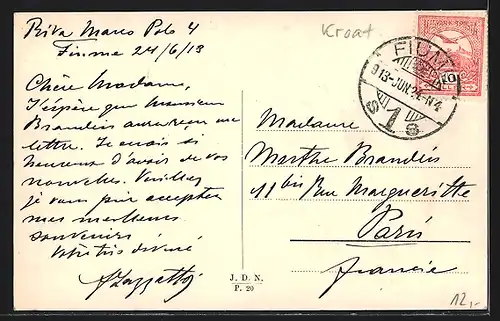 Riva Marco Polo 4
Fiume 24/6/13
Chère Madame,
J'espère que Monsieur
Brandeis aura reçu ma
lettre. Je serais si
heureux d'avoir de vos
nouvelles. Veuillez
je vous prie accepter
mes meilleurs
souvenirs
Votre très dévoué
Kroat
FIUM
913 JUN. 24
S 1 S
10
Madame
Marthe Brandeis
11 bis Rue Margueritte
Paris
Francie
J. D. N.
P. 20
12,-